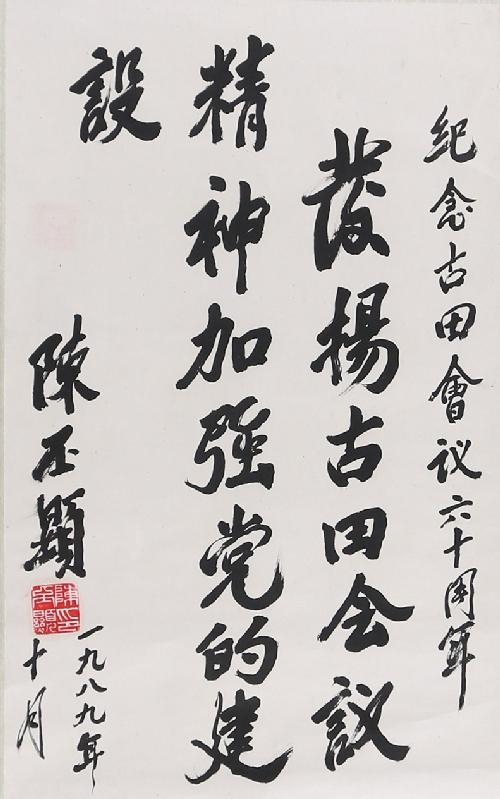 纪念古田會议六十周年
發揚古田会议
精神加强党的建
設
陳丕顯
一九八九年
十月